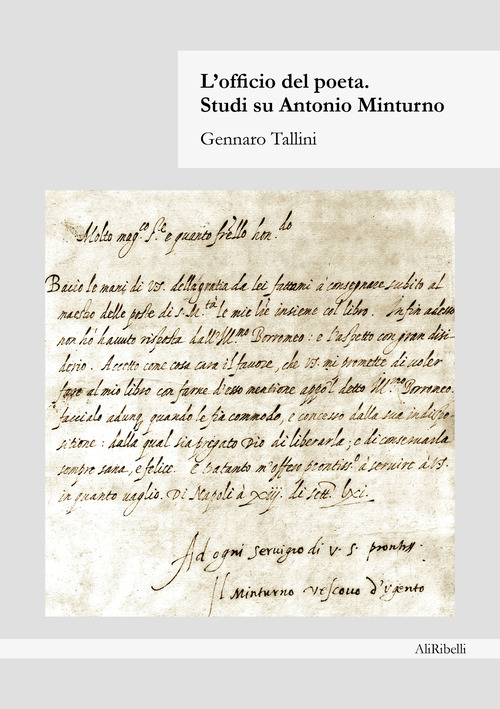 L'officio del poeta.
Studi su Antonio Minturno
Gennaro Tallini
Molto mag.co s.re e quanto fr̃ello hon.do
Bacio le mani di V.S. della gratia da lei fattami à consegnare subito al
maestro delle poste di S.M.tà le mie l're insieme col libro. Infin adesso
non hò havuto risposta dall'Ill.mo Borromeo: e l'aspetto con gran disi-
derio. Accetto come cosa cara il favore, che V.S. mi promette di voler
fare al mio libro con farne d'esso mentione detto Ill.mo Borromeo.
faccialo adunq, quando le fia commodo, e concesso dalla sua indispo-
sitione: dalla qual sia pregato Dio di liberarla; e di conservarla
sempre sana, e felice. E tratanto m'offero prontiss.o à servire à V.S.
in quanto vaglio. Di Napoli à xiij. di sett. lxi.
Ad ogni servigio di V.S. prontiss.
Il Minturno Vescovo d'Ugento
AliRibelli